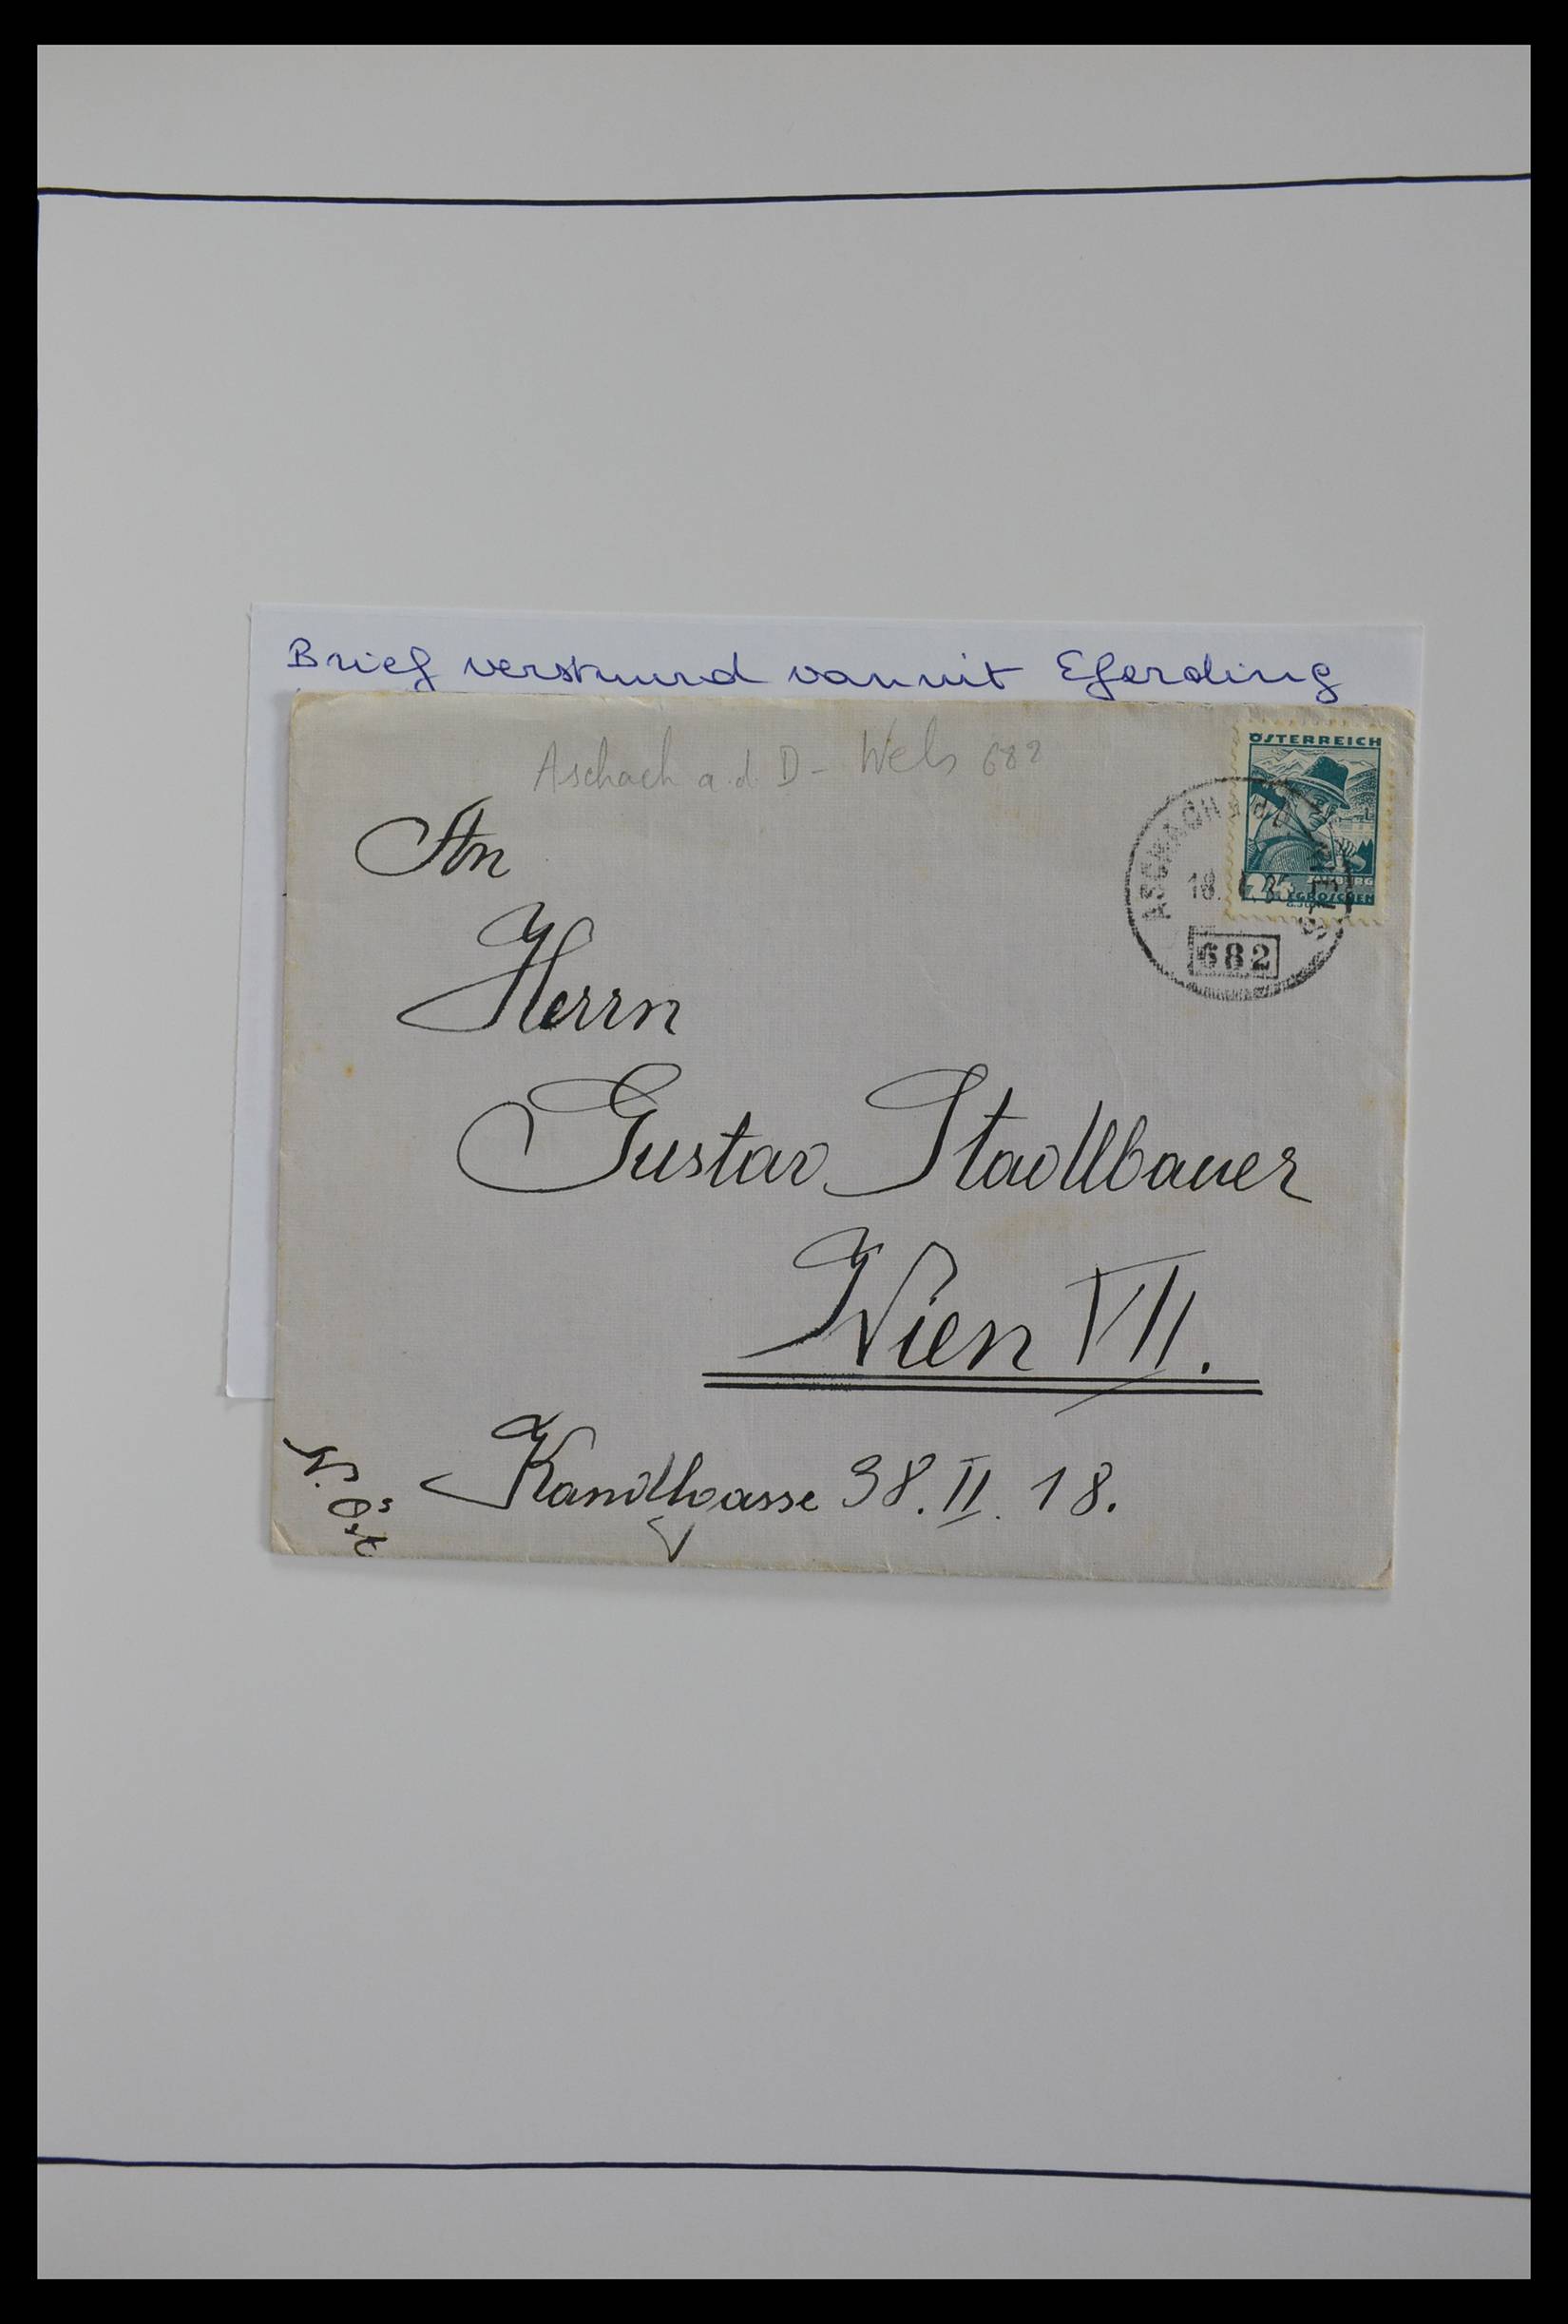 Brief verstuurd vanuit Eferding
Aschach a. d. D - Wels 682
ÖSTERREICH
24
SALZBURG
GROSCHEN
ASCHACH a.d.D.
18.
682
An
Herrn
Gustav Stadlbauer
Wien VII.
Kandlgasse 38. II. 18.
N. Öst